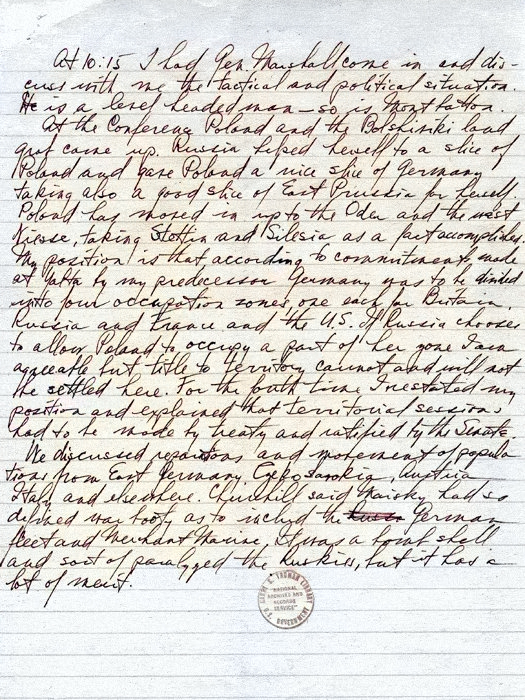 At 10:15 I had Gen. Marshall come in and dis-
cuss with me the tactical and political situation.
He is a level headed man – so is Mountbatton.
At the Conference Poland and the Bolshiviki land
grab came up. Russia helped herself to a slice of
Poland and gave Poland a nice slice of Germany
taking also a good slice of East Prussia for herself.
Poland has moved in up to the Oder and the west
Niesse, taking Stettin and Silesia as a fact accomplished.
My position is that according to commitments made
at Yalta by my predecessor Germany was to be divided
into four occupation zones, one each for Britain,
Russia and France and the U.S. If Russia chooses
to allow Poland to occupy a part of her zone I am
agreeable but title to territory cannot and will not
be settled here. For the time I restated my
position and explained that territorial sessions
had to be made by treaty and ratified by the Senate.
We discussed reparations and movement of popula-
tions from East Germany, Austria
Italy and elsewhere. Churchill said Maisky had so
defined war booty as to include the German
fleet and Merchant Marine. It was a bomb shell
and sort of paralyzed the Ruskies, but it has a
lot of merit.
HARRY S. TRUMAN LIBRARY
NATIONAL
ARCHIVES AND
RECORDS
SERVICE
U.S. GOVERNMENT